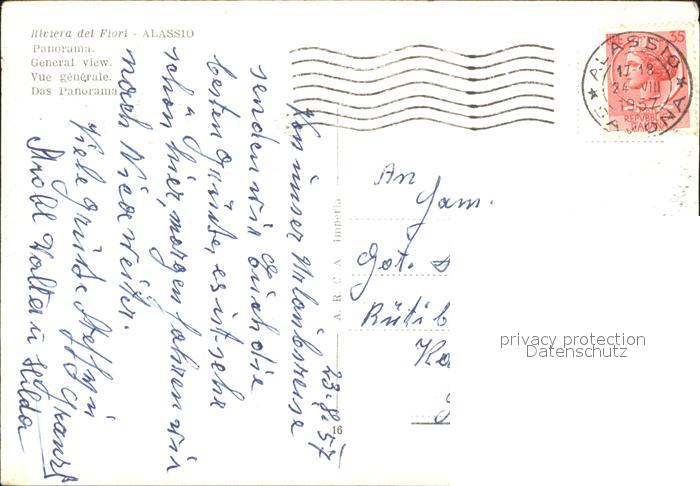 Riviera dei Fiori - ALASSIO
Panorama.
General view.
Vue générale.
Das Panorama
23.8.57
Von unser Urlaubsreise
senden wir Euch die
besten Grüsse, es ist sehr
schön hier, morgen fahren wir
nach Nizza weiter.
Viele Grüsse
Hilda
A. R. C. A. Imperia
16
An
Fam.
Got.
Rütib
35
ALASSIO
SAVONA
17-18
24 VIII
1957
privacy protection
Datenschutz